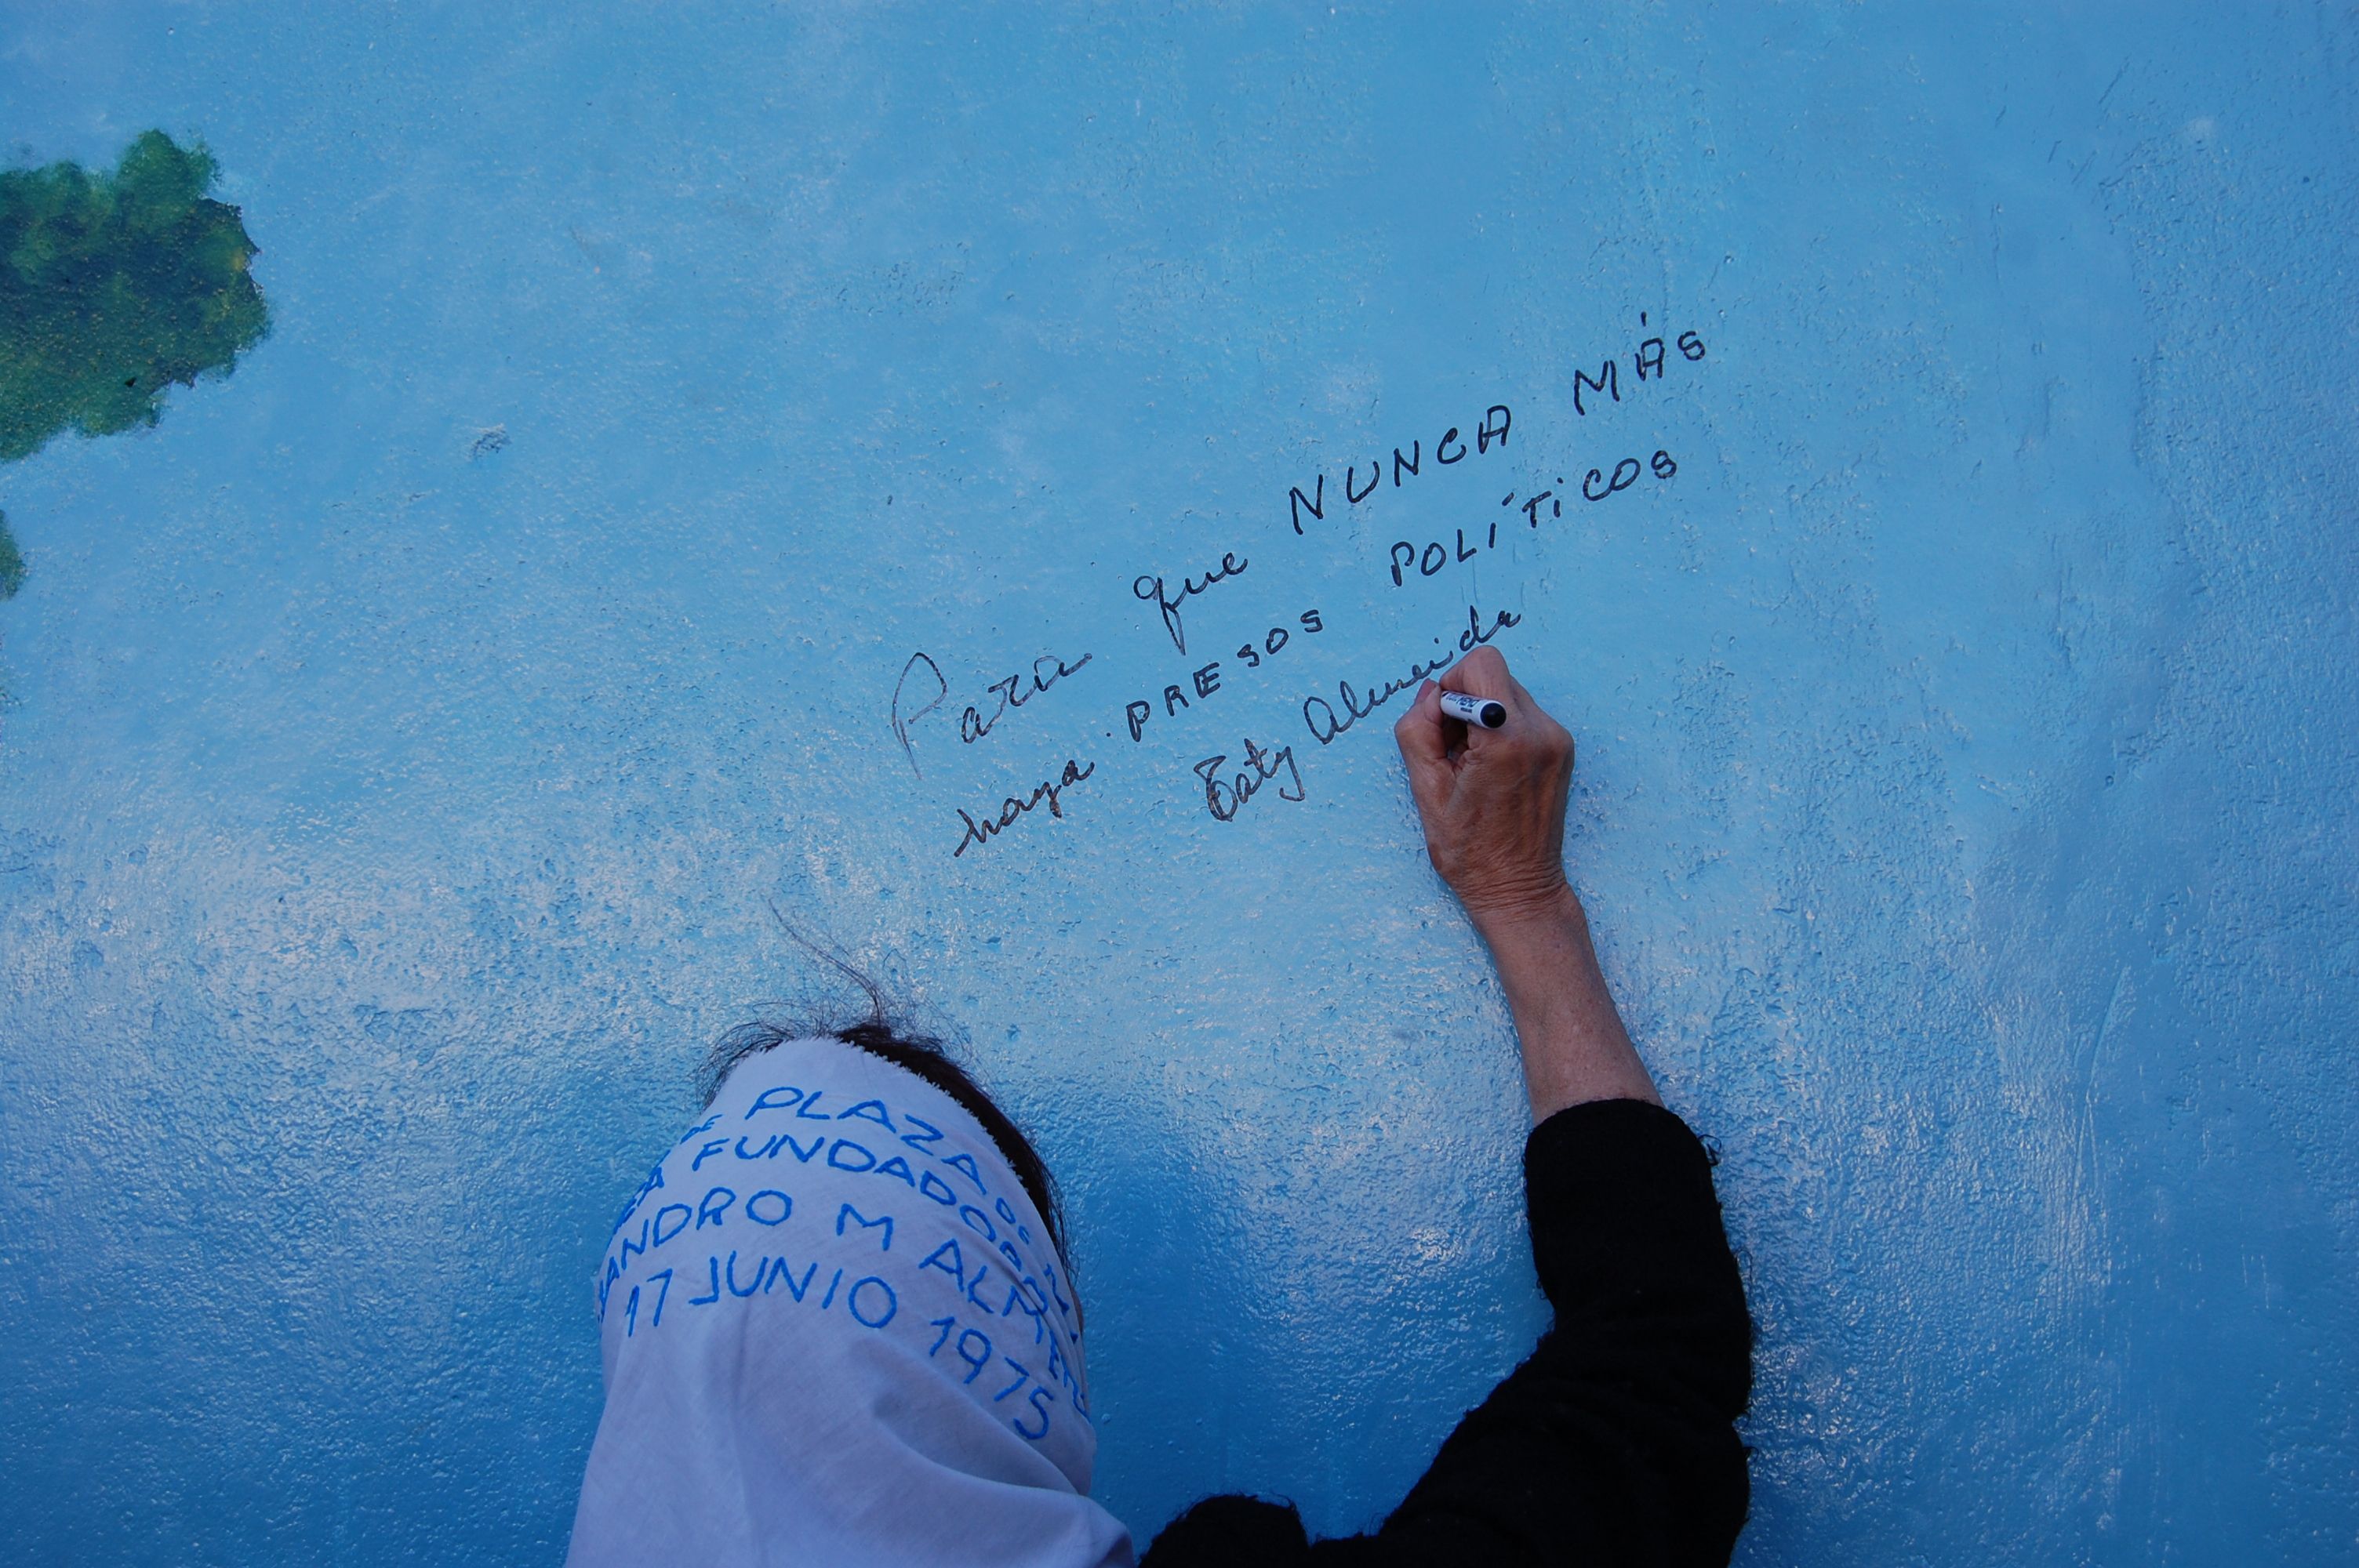 Para que NUNCA MÁS
haya PRESOS POLÍTICOS
Taty Almeida
DE PLAZA DE
FUNDADORA
ANDRO M ALMEIDA
17 JUNIO 1975